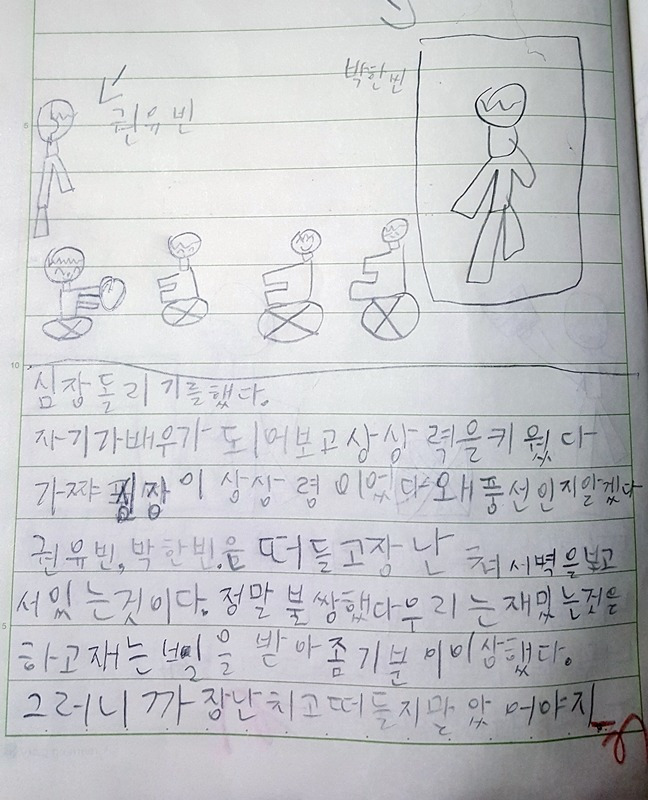 권유빈
박한빈
심장돌리기를했다.
자기가배우가 되어보고상상력을키웠다
가짜 심장이 상상령이었다왜풍선인지알겠다
권유빈,박한빈,은 떠들고장난 쳐서벽을보고
서있는것이다. 정말 불쌍했다우리는재밌는것은
하고재는 벌을 받아 좀기분이이상했다.
그러니까장난치고떠들지말았어야지